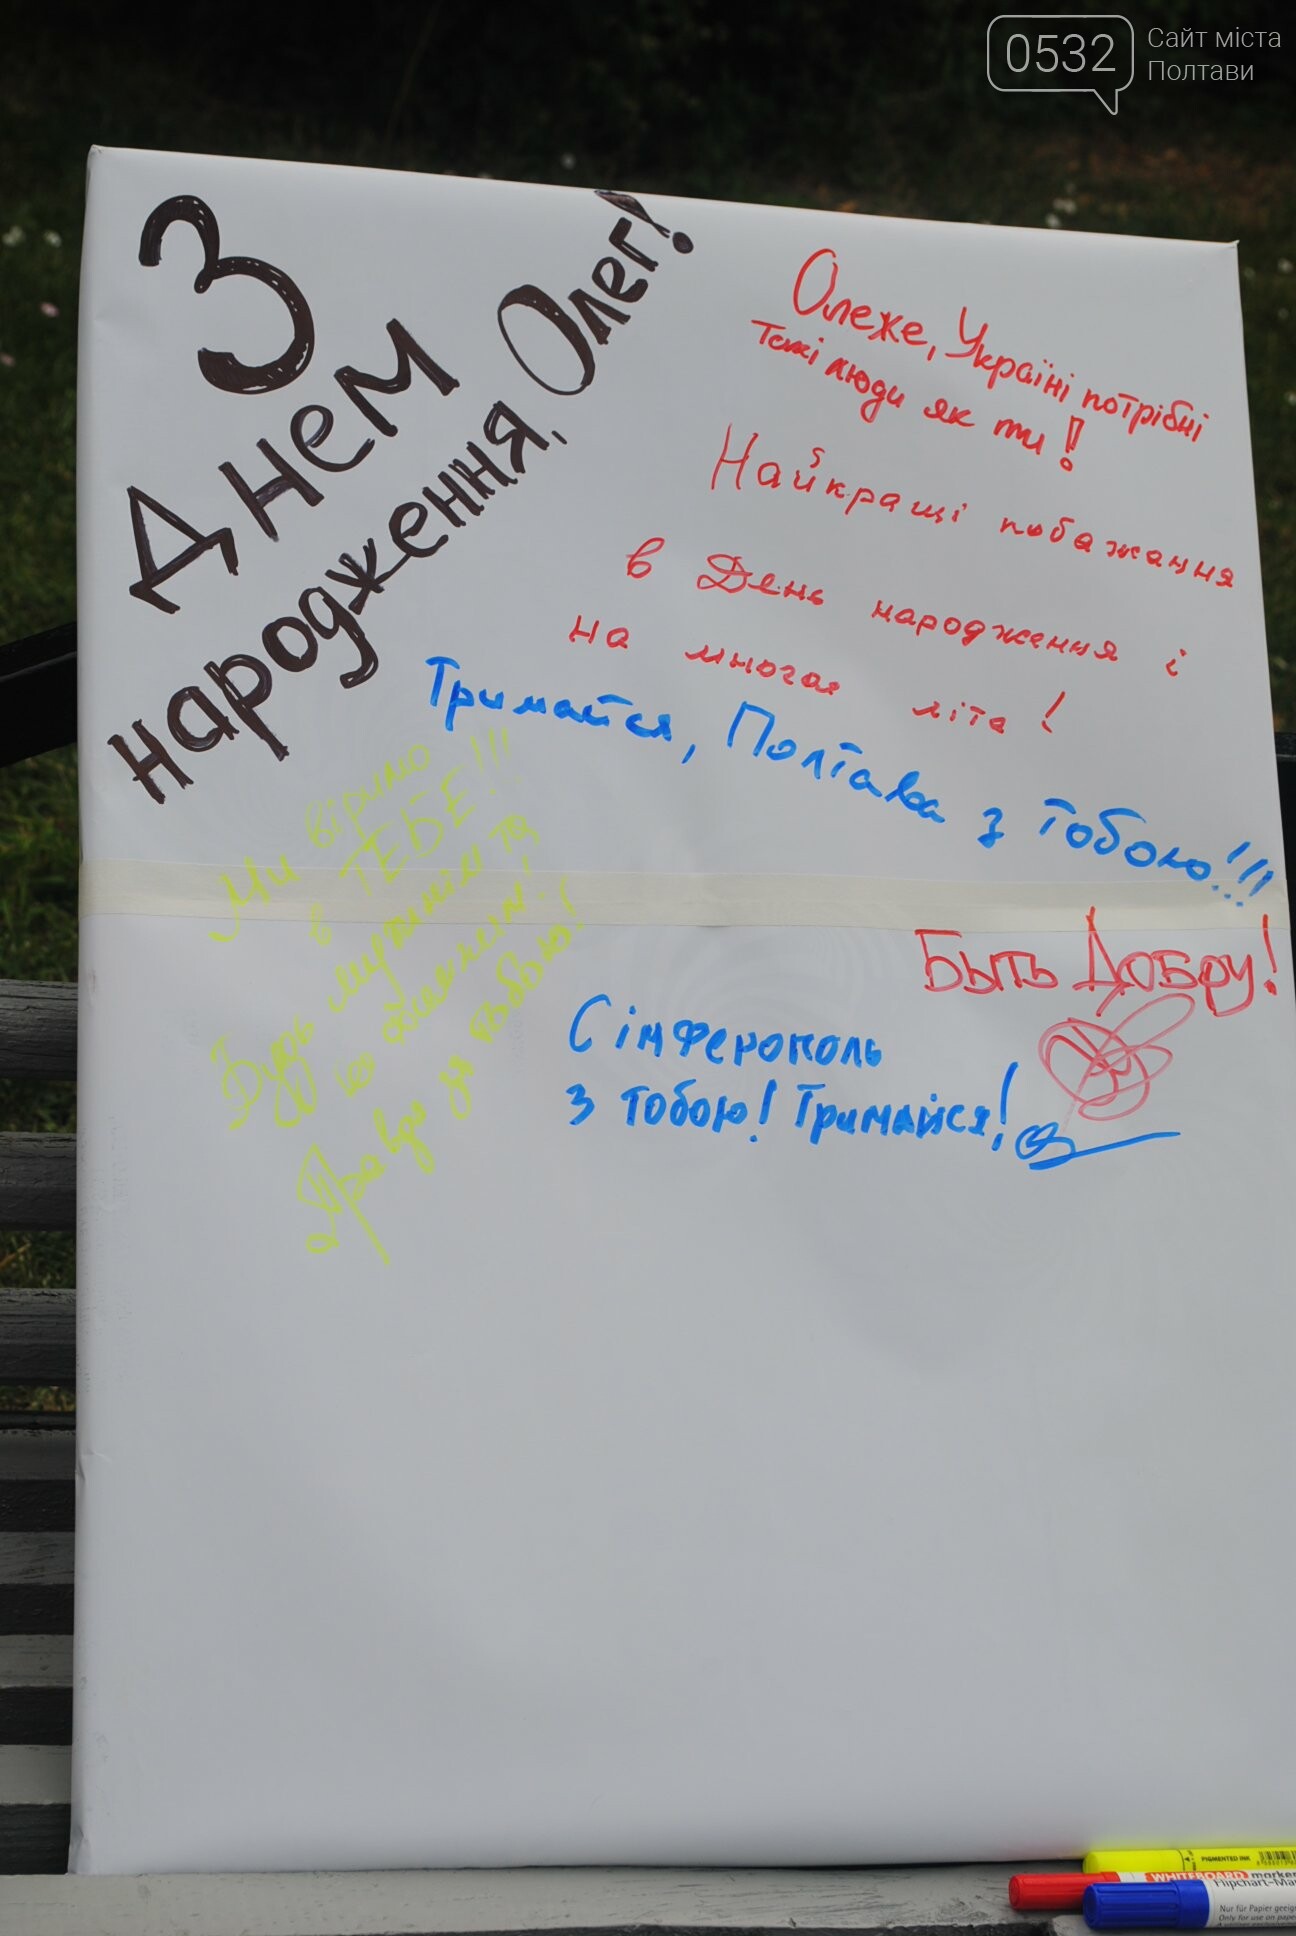 0532
Сайт міста
Полтави
З
Днем
народження, Олег!
Олеже, Україні потрібні
такі люди як ти!
Найкращі побажання
в День народження і
на многая літа!
Тримайся, Полтава з тобою!!!
Ми віримо
в ТЕБЕ!!!
Будь мужнім та
Правда за тобою!
Быть Добру!
Сімферополь
з тобою! Тримайся!
PIGMENTED INK
WHITEBOARD marker
Flipchart-Ma
Nur für Papier geeig
Only for use on pape